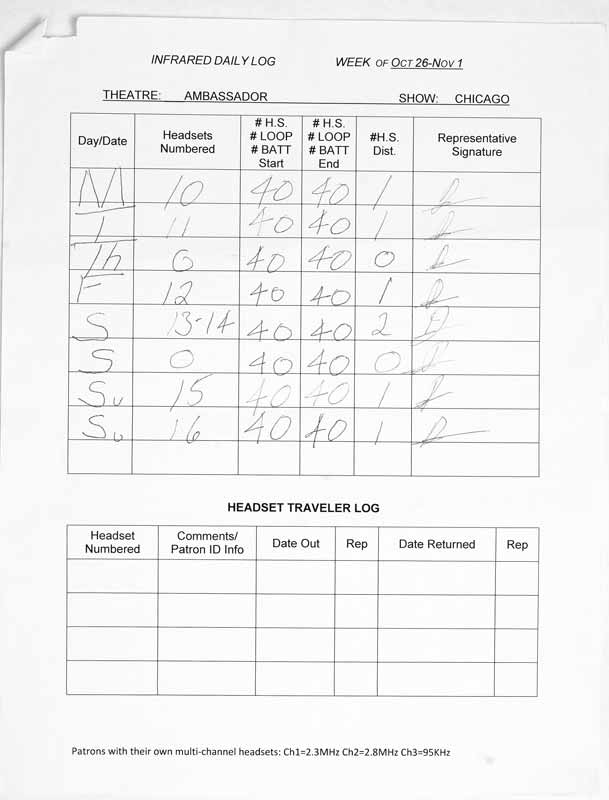 INFRARED DAILY LOG WEEK OF OCT 26-NOV 1
THEATRE: AMBASSADOR SHOW: CHICAGO
Day/Date Headsets Numbered # H.S. # LOOP # BATT Start # H.S. # LOOP # BATT End #H.S. Dist. Representative Signature
M 10 40 40 1
T 11 40 40 1
Th 0 40 40 0
F 12 40 40 1
S 13-14 40 40 2
S 0 40 40 0
Su 15 40 40 1
Su 16 40 40 1
HEADSET TRAVELER LOG
Headset Numbered Comments/ Patron ID Info Date Out Rep Date Returned Rep
Patrons with their own multi-channel headsets: Ch1=2.3MHz Ch2=2.8MHz Ch3=95KHz